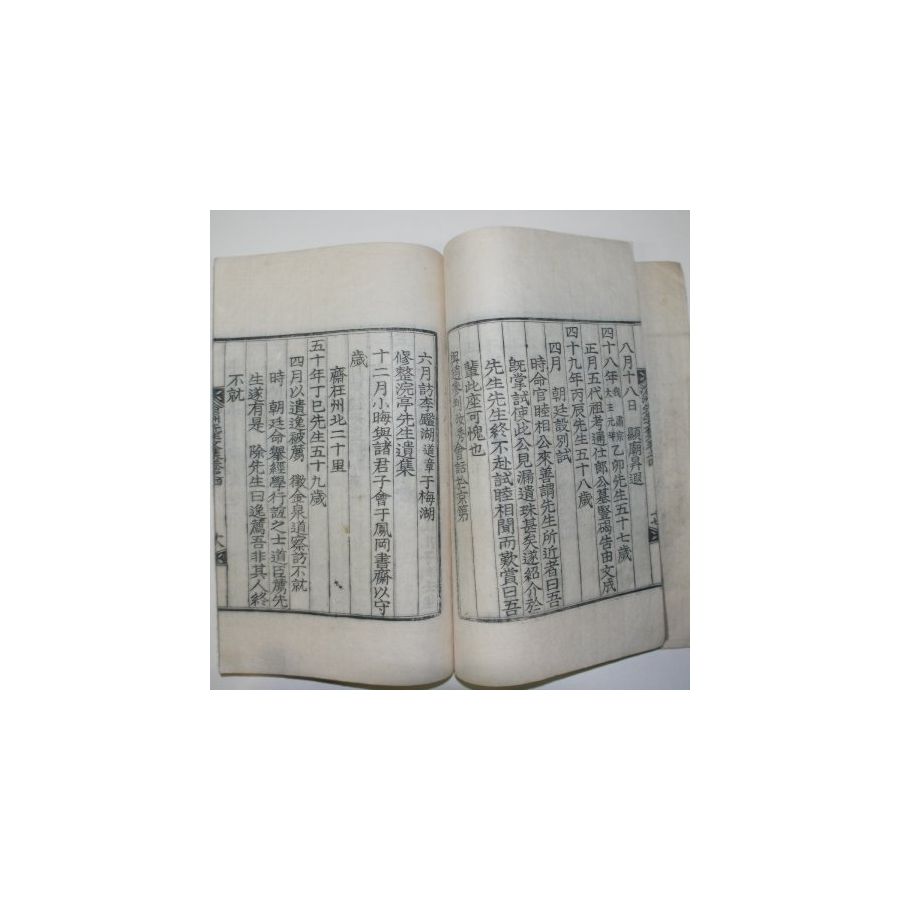 八月十八日 顯廟昇遐
四十八年 肅宗大王元年 乙卯先生五十七歲
正月五代祖考通仕郎公墓竪碣告由文成
四十九年丙辰先生五十八歲
四月 朝廷設別試
時命官睦相公來善謂先生所近者曰吾
旣掌試使此公見漏遺珠甚矣遂紹介於
先生先生終不赴試睦相聞而歎賞曰吾
輩此座可愧也
會話於京第
六月訪李鑑湖道章于梅湖
修整浣亭先生遺集
十二月小晦與諸君子會于鳳岡書齋以守
歲
齋在州北二十里
五十年丁巳先生五十九歲
四月以遺逸被薦 徵金泉道察訪不就
時 朝廷命擧經學行誼之士道臣薦先
生遂有是 除先生曰逸薦吾非其人終
不就